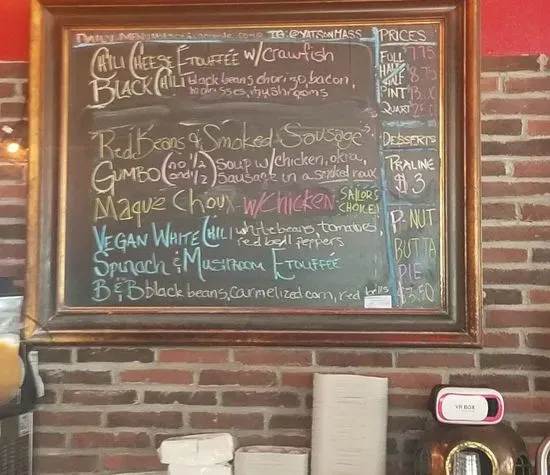 DAILY MENU IG:@YATSONMASS
CHILI CHEESE ETOUFFÉE W/CRAWFISH
BLACK CHILI black beans, chorizo, bacon,
molasses, mushrooms
"RED BEANS & SMOKED SAUSAGE"
GUMBO (no 1/2 and 1/2) SOUP W/chicken, okra,
sausage in a smoked roux
MAQUE CHOUX W/CHICKEN SAILOR'S
CHOICE!
VEGAN WHITE CHILI white beans, tomatoes,
red bell peppers
SPINACH & MUSHROOM ETOUFFÉE
B&B black beans, carmelized corn, red bells
PRICES
FULL $7.75
HALF/
HALF $8.75
PINT
QUART
DESSERTS
PRALINE
$3
P-NUT
BUTTA
PIE
$3.50
VR BOX